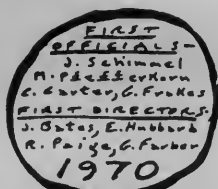 FIRST
OFFICIALS-
J. Schimmel
M. Pfefferkorn
C. Carter, G. Frakes
FIRST DIRECTORS-
J. Bates, E. Hubbard
R. Paige, G. Farber
1970